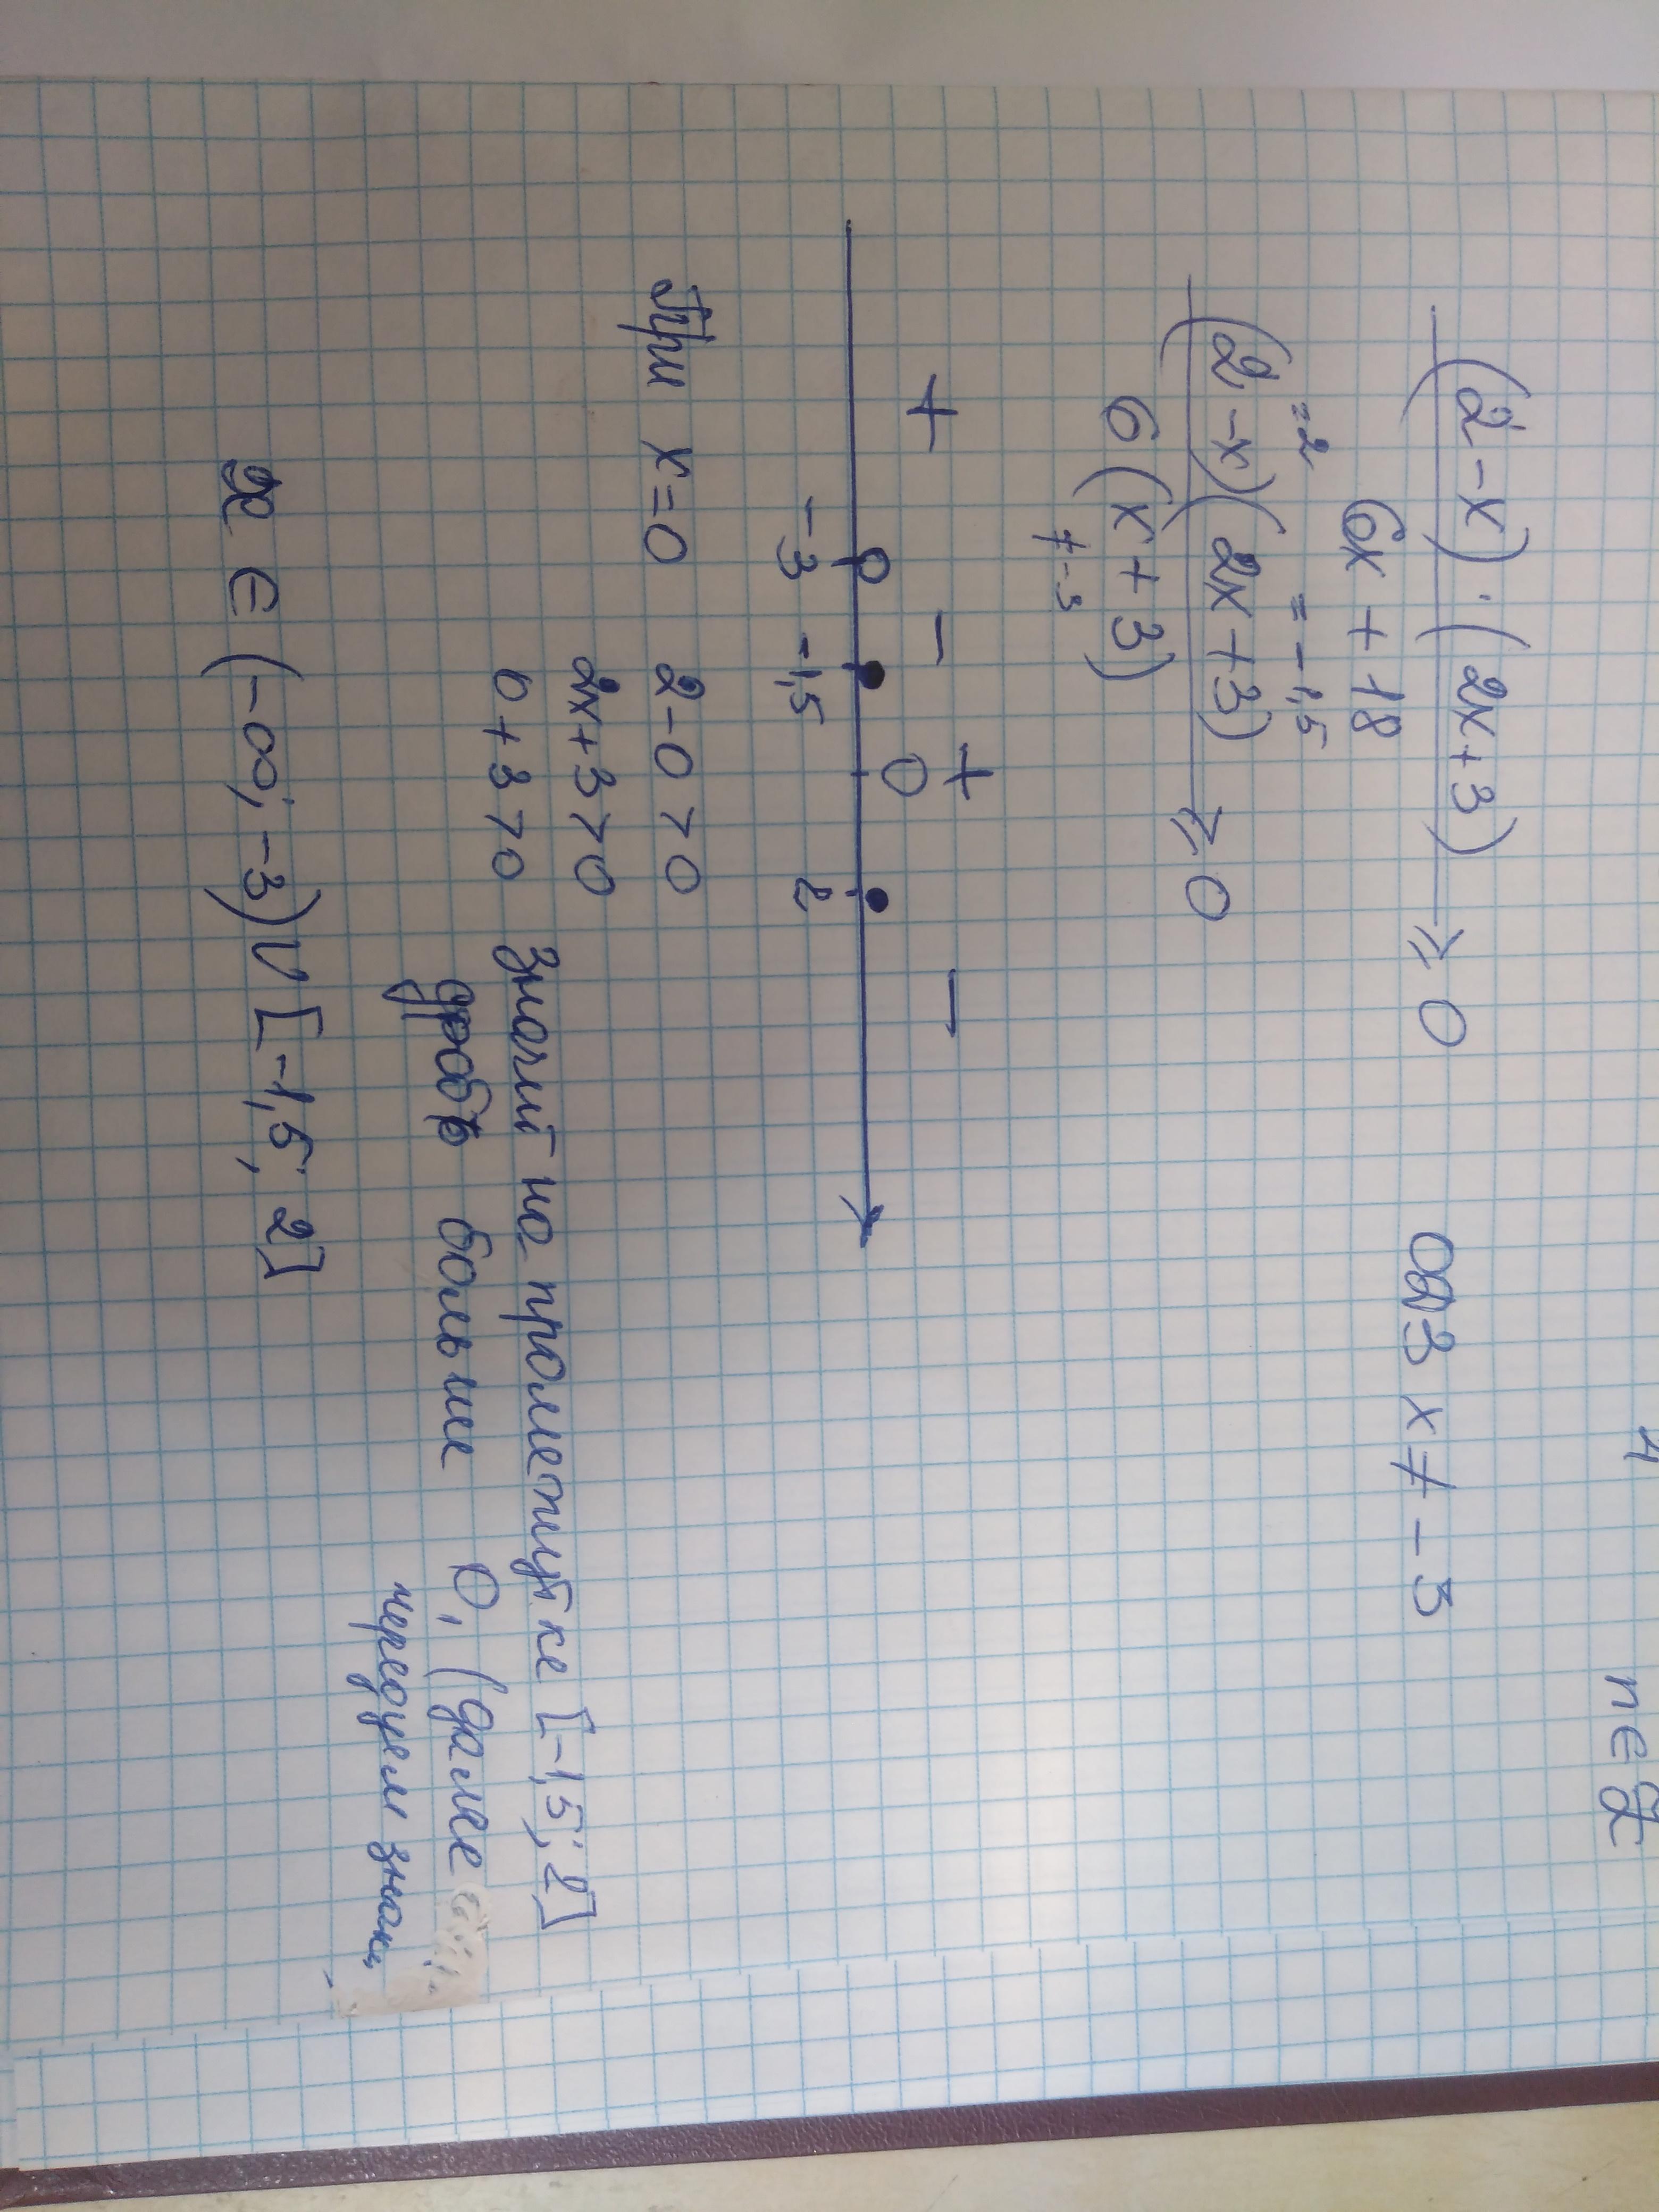 4
n ∈ Z
(2-x)·(2x+3)
≥ 0
ОДЗ x ≠ -3
6x + 18
=2 = -1,5
(2-x)(2x+3)
≥ 0
6(x+3)
≠ -3
+ - + -
0
-3 -1,5 2
При x=0 2-0>0
2x+3>0
0+3>0 значит на промежутке [-1,5; 2]
дробь больше 0, (далее
чередуем знаки
x ∈ (-∞; -3) ∪ [-1,5; 2]